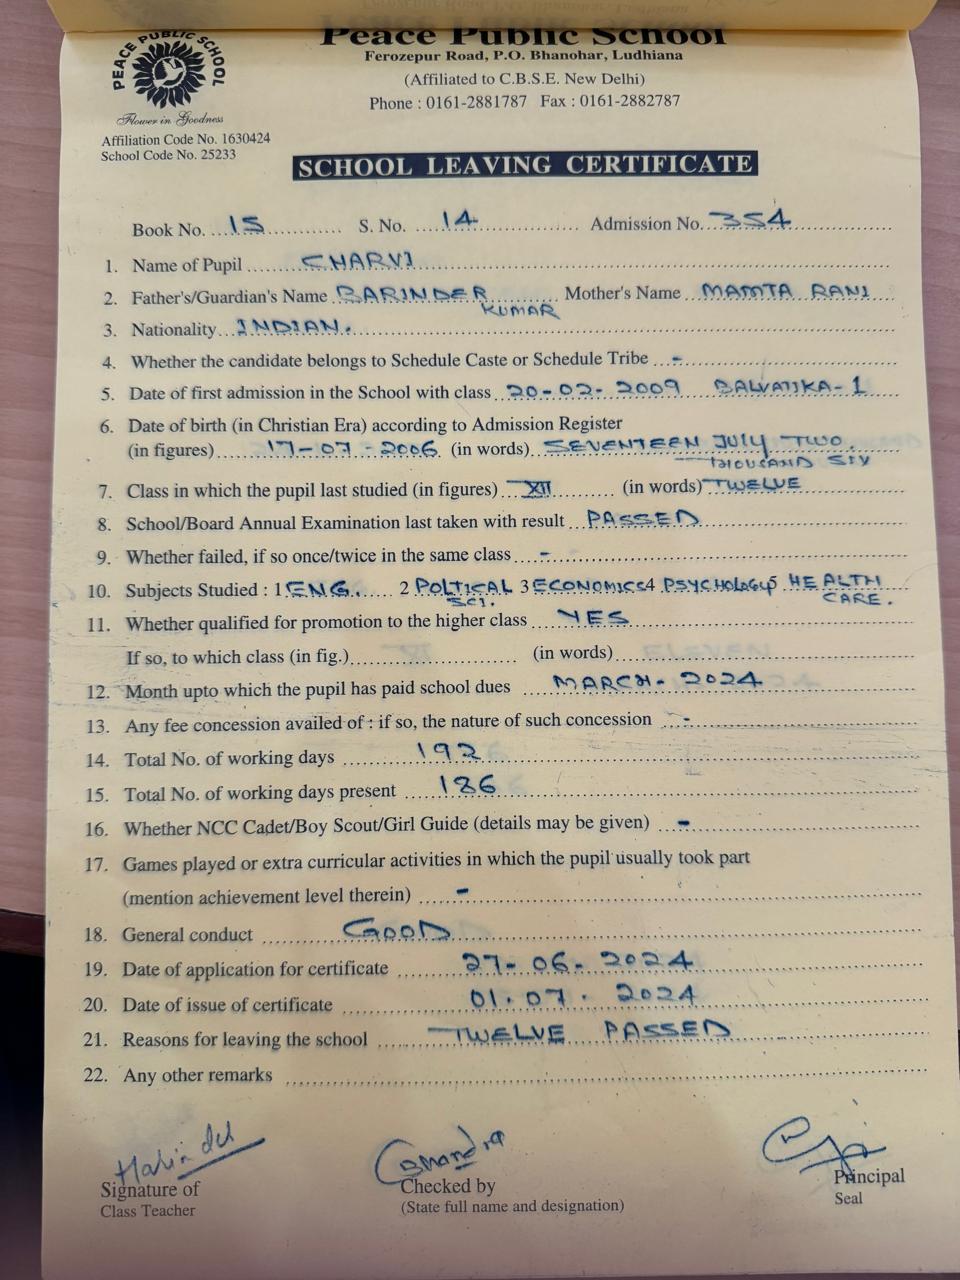 Peace Public School
PEACE PUBLIC SCHOOL
Ferozepur Road, P.O. Bhanohar, Ludhiana
(Affiliated to C.B.S.E. New Delhi)
Phone : 0161-2881787 Fax : 0161-2882787
Flower in Goodness
Affiliation Code No. 1630424
School Code No. 25233
SCHOOL LEAVING CERTIFICATE
Book No. 15 S. No. 14 Admission No. 354
1. Name of Pupil CHARVI
2. Father's/Guardian's Name BARINDER KUMAR Mother's Name MAMTA RANI
3. Nationality INDIAN.
4. Whether the candidate belongs to Schedule Caste or Schedule Tribe -
5. Date of first admission in the School with class 20-02-2009 BALVATIKA-1
6. Date of birth (in Christian Era) according to Admission Register
(in figures) 17-07-2006 (in words) SEVENTEEN JULY TWO THOUSAND SIX
7. Class in which the pupil last studied (in figures) XII (in words) TWELVE
8. School/Board Annual Examination last taken with result PASSED
9. Whether failed, if so once/twice in the same class -
10. Subjects Studied : 1 ENG. 2 POLTICAL SCI. 3 ECONOMICS 4 PSYCHOLOGY 5 HEALTH CARE.
11. Whether qualified for promotion to the higher class YES
If so, to which class (in fig.) (in words)
12. Month upto which the pupil has paid school dues MARCH-2024
13. Any fee concession availed of : if so, the nature of such concession -
14. Total No. of working days 192
15. Total No. of working days present 186
16. Whether NCC Cadet/Boy Scout/Girl Guide (details may be given) -
17. Games played or extra curricular activities in which the pupil usually took part
(mention achievement level therein) -
18. General conduct GOOD
19. Date of application for certificate 27-06-2024
20. Date of issue of certificate 01.07.2024
21. Reasons for leaving the school TWELVE PASSED
22. Any other remarks
Signature of Checked by Principal
Class Teacher (State full name and designation) Seal